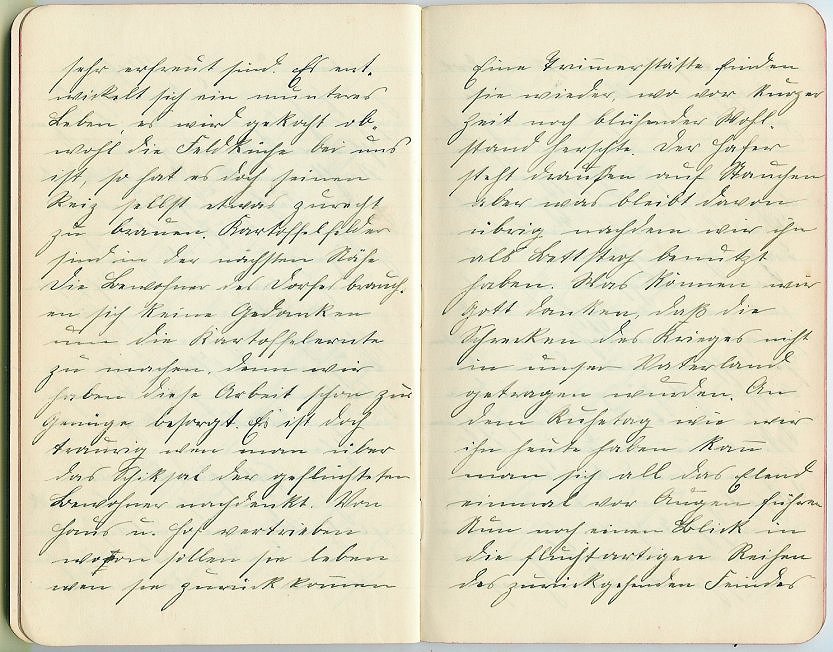 sehr erfreut sind. Es ent-
wickelt sich ein munteres
Leben, es wird gekocht ob-
wohl die Feldküche bei uns
ist, so hat es doch seinen
Reiz selbst etwas zurecht
zu brauen. Kartoffelfelder
sind in der nächsten Nähe
Die Bewohner des Dorfes brauch-
en sich keine Gedanken
um die Kartoffelernte
zu machen, denn wir
haben diese Arbeit schon zur
Genüge besorgt. Es ist doch
traurig wen man über
das Schiksal der geflüchteten
Bewohner nachdenkt. Von
Haus u. Hof vertrieben
wovon sollen sie leben
wen sie zurück kom̅en
Eine Trüm̅erstätte finden
sie wieder, wo vor kurzer
Zeit noch blühender Wohl-
stand herschte. Der Hafer
steht draußen auf Stauchen
aber was bleibt davon
übrig nachdem wir ihn
als Bettstroh benutzt
haben. Was können wir
Gott danken, daß die
Schrecken des Krieges nicht
in unser Vaterland
getragen wurden. An
dem Ruhetag wie wir
ihn heute haben kan̅
man sich all das Elend
einmal vor Augen führen
Nun noch einen Blick in
die fluchtartigen Reihen
des zurückgehenden Feindes